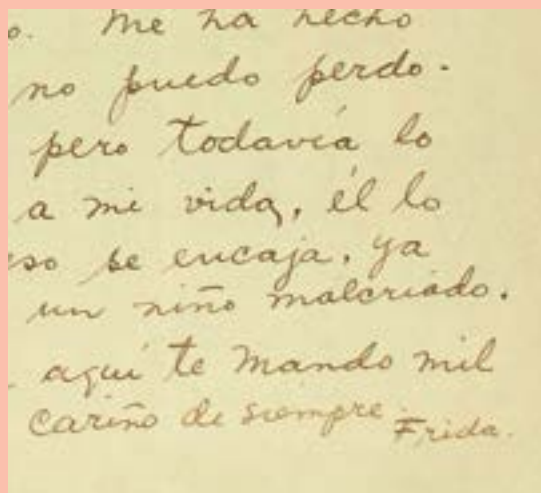 o. Me ha hecho
no puedo perdo-
pero todavía lo
a mi vida, él lo
eso se encaja, ya
un niño malcriado.
aquí te mando mil
cariño de siempre.
Frida.